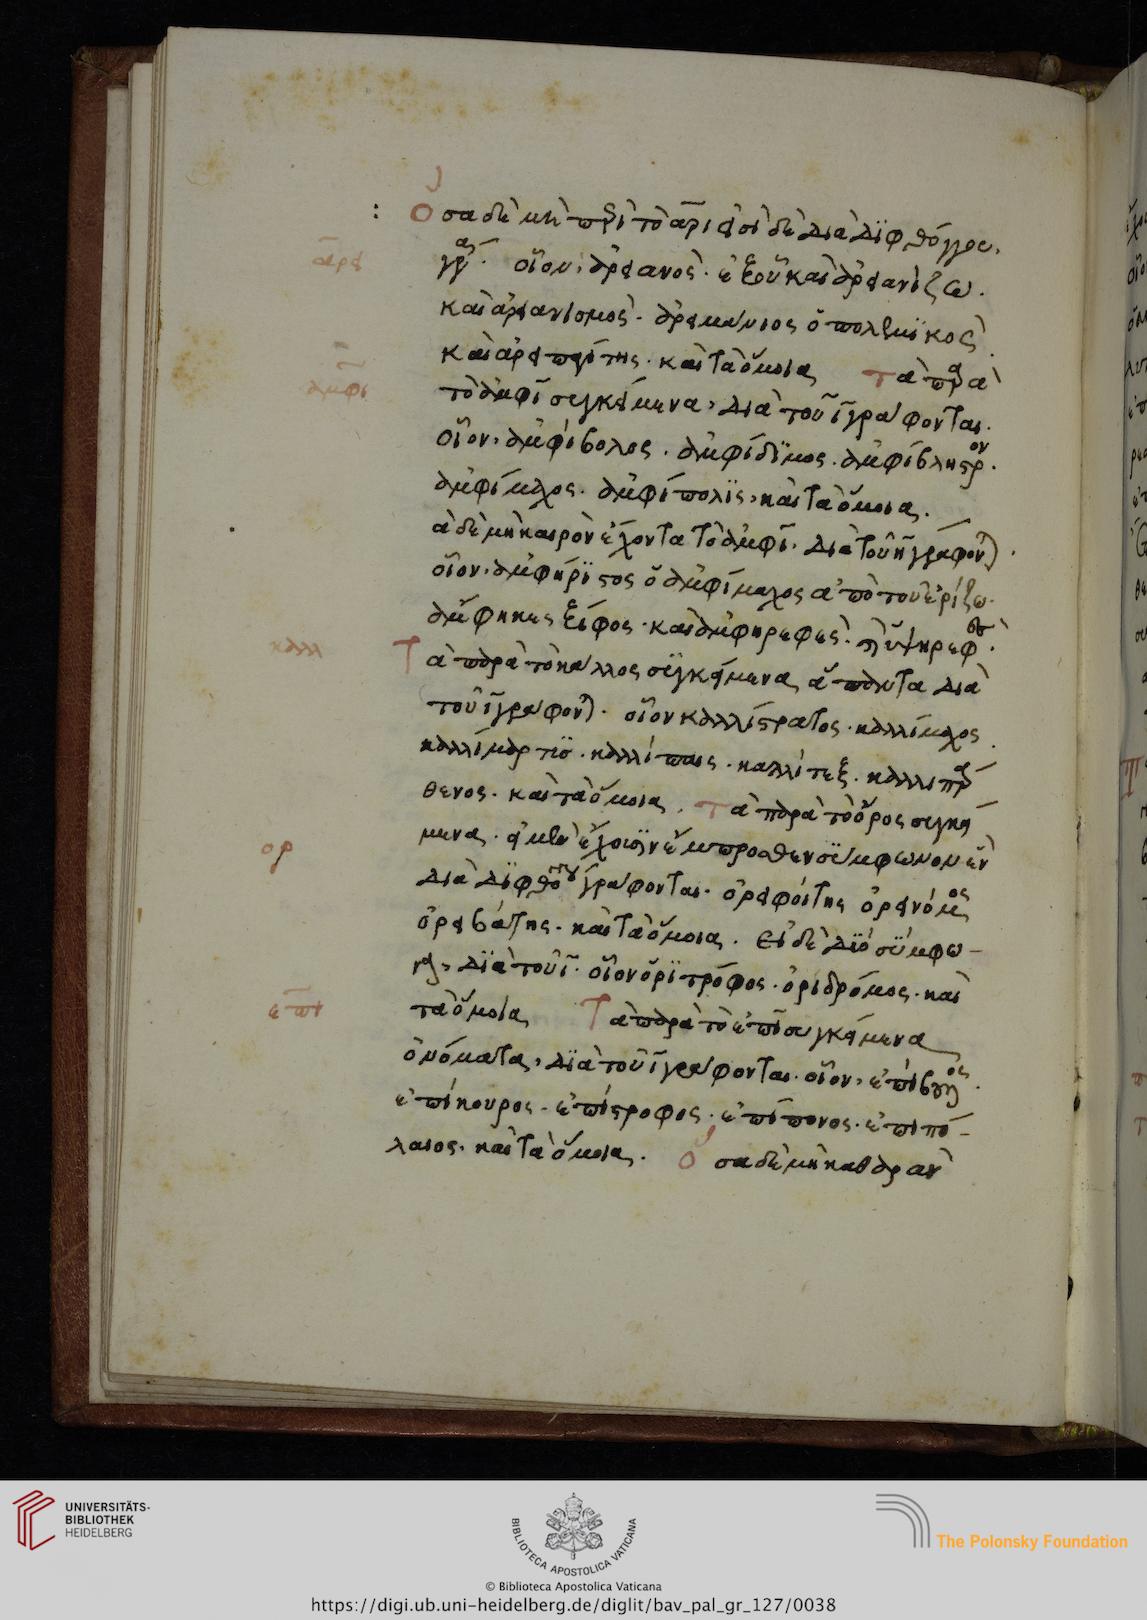 Ὅσα δὲ μὴ περὶ τὸ ἀρι εἰσὶ δὲ διὰ διφθόγγου
ἀρει
γρα. οἷον, ἀρειανὸς. ἐξ οὗ καὶ ἀρειανίζω.
καὶ ἀρειανισμὸς. ἀρειμάνιος ὁ πολεμικὸς
καὶ ἀρειοπαγίτης. καὶ τὰ ὅμοια Τὰ παρὰ
ἀμφι
τὸ ἀμφὶ συγκείμενα, διὰ τοῦ ῑ γράφονται.
οἷον, ἀμφίβολος. ἀμφίδϊμος. ἀμφίβληστρον.
ἀμφίμαχος. ἀμφίπολϊς, καὶ τὰ ὅμοια.
ἃ δὲ μὴ καιρὸν ἔχοντα τὸ ἀμφὶ, διὰ τοῦ η γράφονται.
οἷον, ἀμφήρϊστος ὁ ἀμφίμαχος ἀπὸ τοῦ ἐρίζω.
ἄμφηκες ξίφος. καὶ ἀμφηρεφὲς.
καλλ
Τὰ παρὰ τὸ κάλλος συγκείμενα, ἅπαντα διὰ
τοῦ ῑ γράφονται. οἷον καλλίστρατος. καλλίμαχος
καλλίμαρτυς. καλλίπαις. καλλιπάρ
θενος. καὶ τὰ ὅμοια. Τὰ παρὰ τὸ ὄρος συγκεί
μενα. εἰ μὲν ἔχοισιν ἔμπροσθεν σύμφωνον ἓν
ορ
διὰ διφθόγγου γράφονται. ὀρειφοίτης ὀρεινόμος
ὀρειβάτης. καὶ τὰ ὅμοια. Εἰ δὲ δϊό σύμφω-
να, δϊὰ τοῦ ῑ. οἷον ὀρϊτρόφος. ὀριδρόμος. καὶ
επι
τὰ ὅμοια Τὰ παρὰ τὸ ἐπὶ συγκείμενα
ὀνόματα, δϊὰ τοῦ ῑ γράφονται. οἷον,
ἐπίκουρος. ἐπίστροφος. ἐπίπονος. ἐπιπό-
λαιος. καὶ τὰ ὅμοια. Ὅσα δὲ μὴ καθαρὰν
UNIVERSITÄTS-
BIBLIOTHEK
HEIDELBERG
BIBLIOTECA APOSTOLICA VATICANA
The Polonsky Foundation
© Biblioteca Apostolica Vaticana
https://digi.ub.uni-heidelberg.de/diglit/bav_pal_gr_127/0038